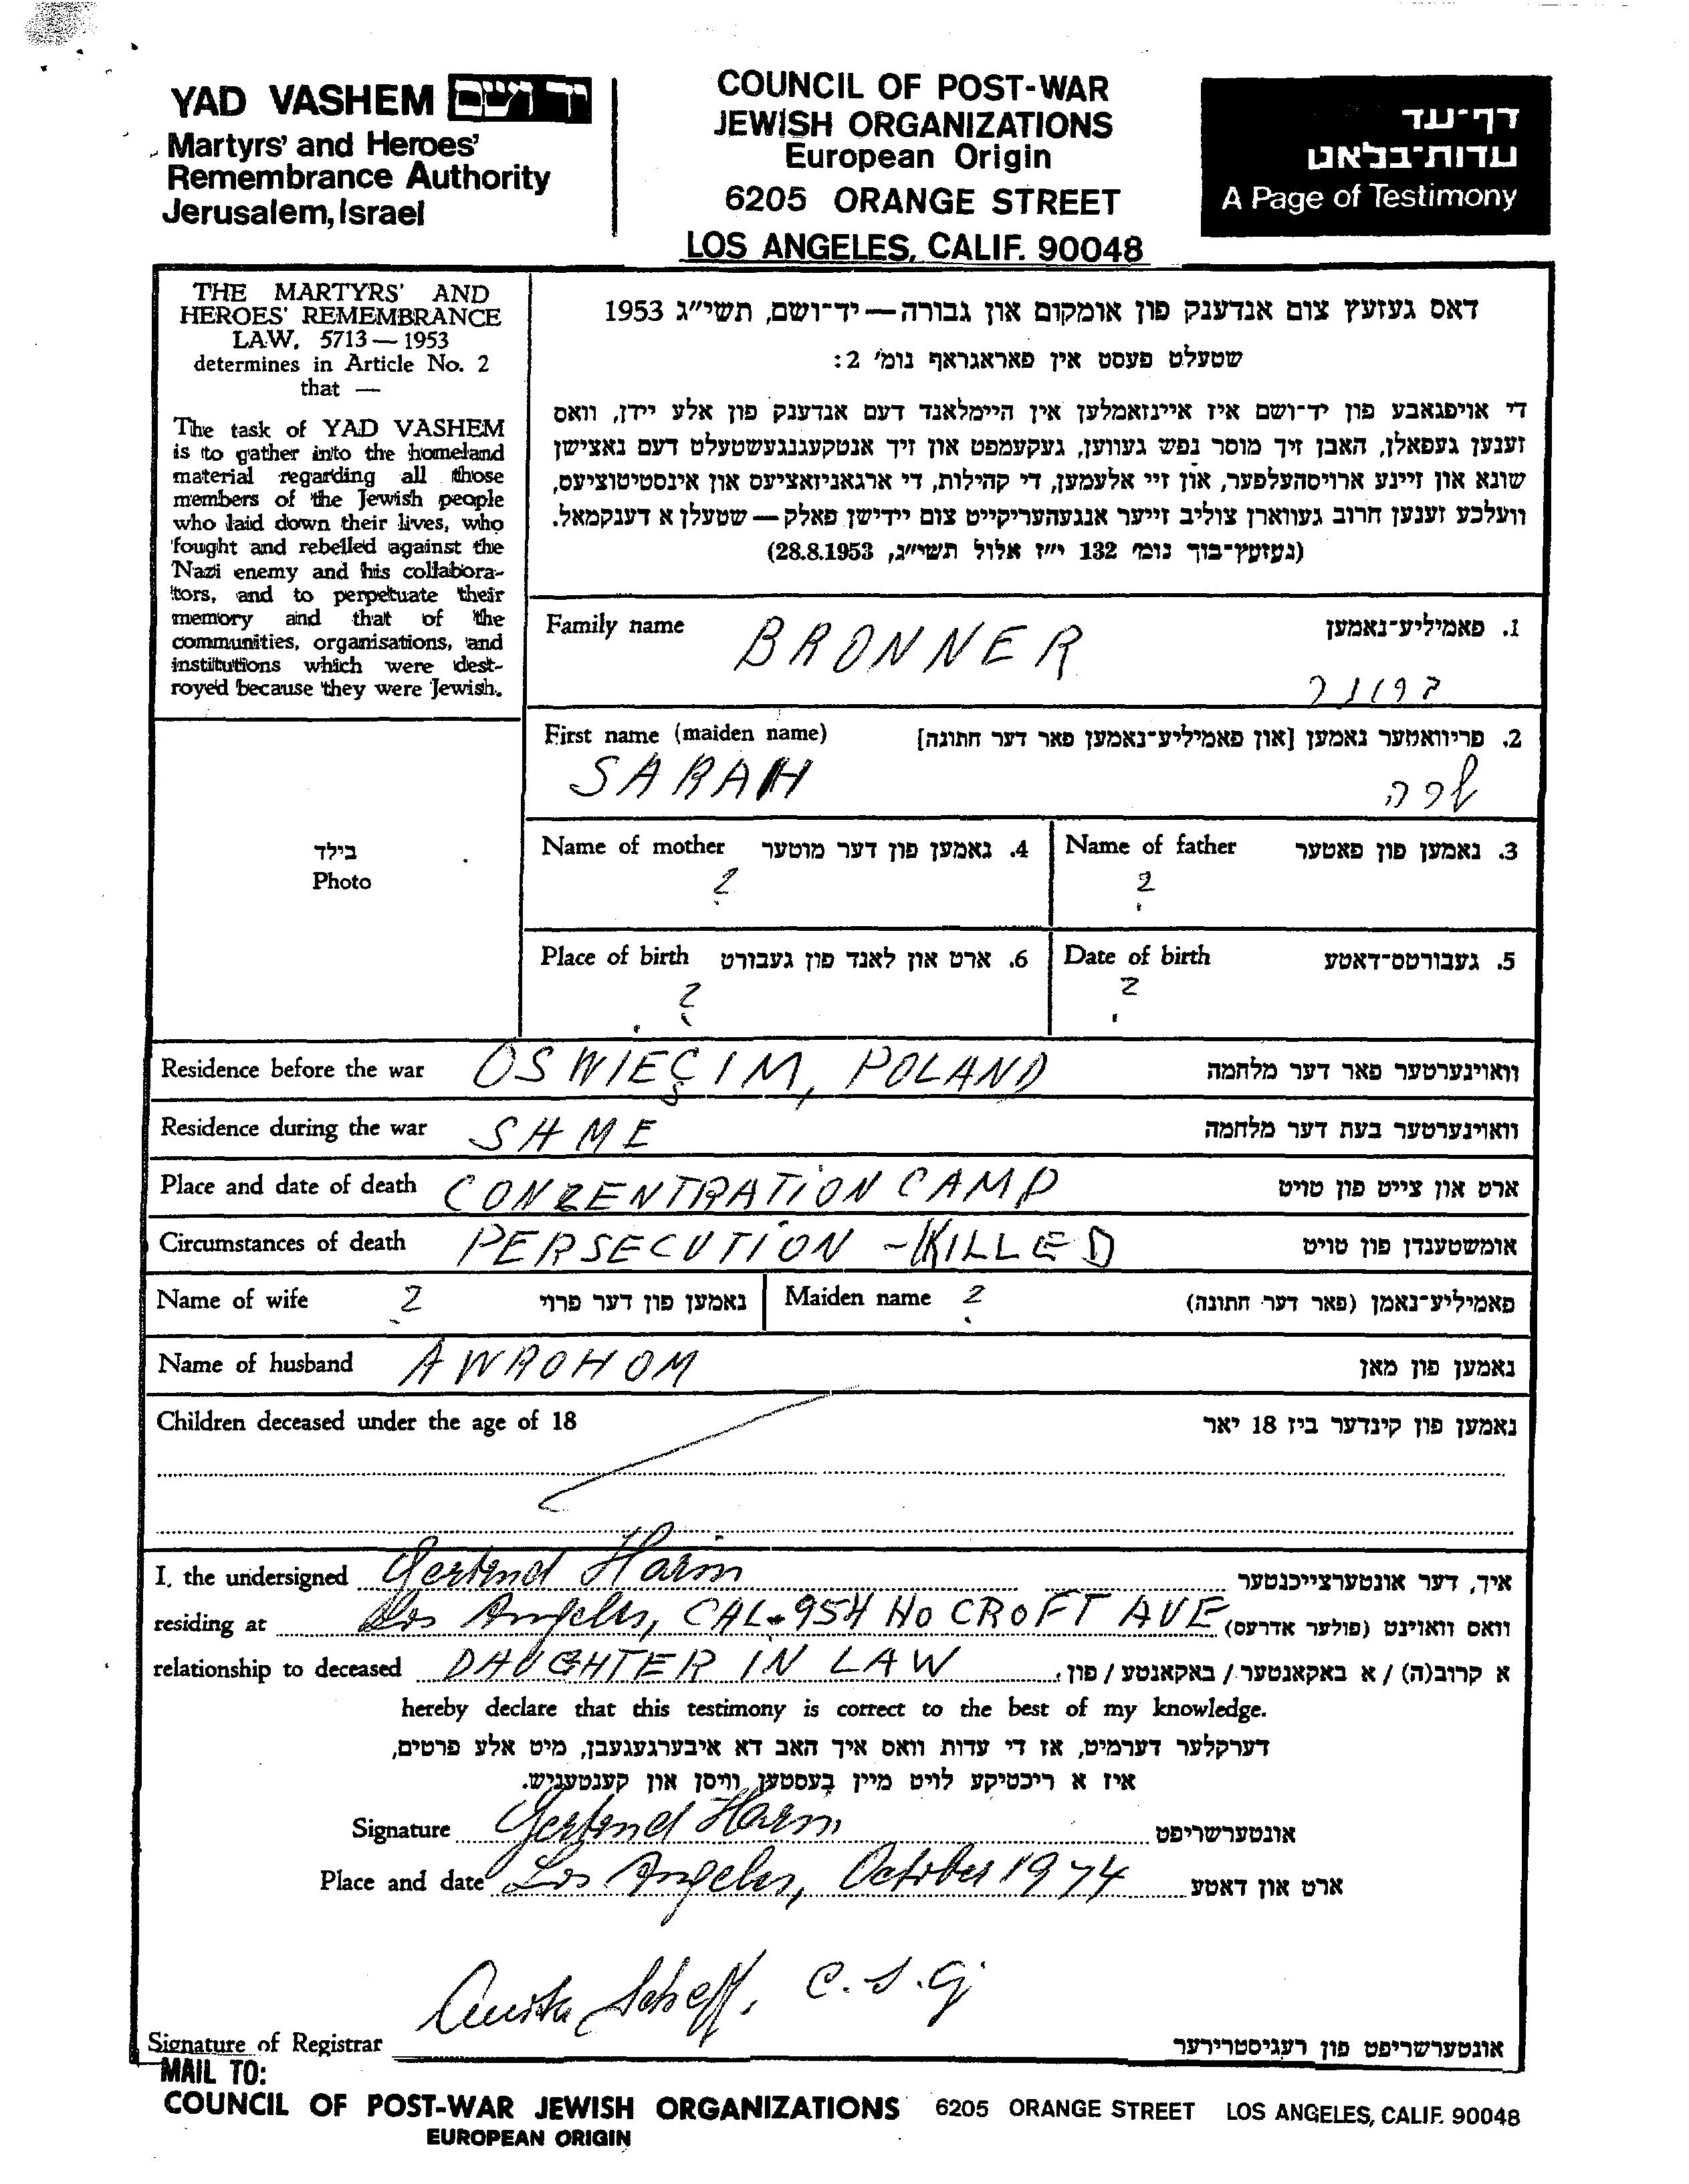 YAD VASHEM יד ושם
Martyrs' and Heroes'
Remembrance Authority
Jerusalem, Israel
COUNCIL OF POST-WAR
JEWISH ORGANIZATIONS
European Origin
6205 ORANGE STREET
LOS ANGELES, CALIF. 90048
דף־עד
עדות־בלאט
A Page of Testimony
THE MARTYRS' AND
HEROES' REMEMBRANCE
LAW, 5713 — 1953
determines in Article No. 2
that —
The task of YAD VASHEM
is to gather into the homeland
material regarding all those
members of the Jewish people
who laid down their lives, who
fought and rebelled against the
Nazi enemy and his collabora-
tors, and to perpetuate their
memory and that of the
communities, organisations, and
institutions which were dest-
royed because they were Jewish.
דאס געזעץ צום אנדענק פון אומקום און גבורה — יד־ושם, תשי״ג 1953
שטעלט פעסט אין פאראגראף נומ׳ 2:
די אויפגאבע פון יד־ושם איז איינזאמלען אין היימלאנד דעם אנדענק פון אלע יידן, וואס
זענען געפאלן, האבן זיך מוסר נפש געווען, געקעמפט און זיך אנטקעגנגעשטעלט דעם נאצישן
שונא און זיינע ארויסהעלפער, און זיי אלעמען, די קהילות, די ארגאניזאציעס און אינסטיטוציעס,
וועלכע זענען חרוב געווארן צוליב זייער אנגעהעריקייט צום יידישן פאלק — שטעלן א דענקמאל.
(געזעץ־בוך נומ׳ 132 י״ז אלול תשי״ג, 28.8.1953)
Family name BRONNER 1. פאמיליע־נאמען
ברונר
First name (maiden name) 2. פריוואטער נאמען [און פאמיליע־נאמען פאר דער חתונה]
SARAH שרה
בילד
Photo
Name of mother 4. נאמען פון דער מוטער
?
Name of father 3. נאמען פון פאטער
?
Place of birth 6. ארט און לאנד פון געבורט
?
Date of birth 5. געבורטס־דאטע
?
Residence before the war OSWIĘÇIM, POLAND וואוינערטער פאר דער מלחמה
Residence during the war SAME וואוינערטער בעת דער מלחמה
Place and date of death CONZENTRATION CAMP ארט און צייט פון טויט
Circumstances of death PERSECUTION - KILLED אומשטענדן פון טויט
Name of wife ? נאמען פון דער פרוי Maiden name ? פאמיליע־נאמן (פאר דער חתונה)
Name of husband AWROHOM נאמען פון מאן
Children deceased under the age of 18 נאמען פון קינדער ביז 18 יאר
I, the undersigned Gertrud Harm איך, דער אונטערצייכנטער
residing at Los Angeles, CAL. 954 NO CROFT AVE וואס וואוינט (פולער אדרעס)
relationship to deceased DAUGHTER IN LAW א קרוב(ה) / א באקאנטער / באקאנטע / פון
hereby declare that this testimony is correct to the best of my knowledge.
דערקלער דערמיט, אז די עדות וואס איך האב דא איבערגעגעבן, מיט אלע פרטים,
איז א ריכטיקע לויט מיין בעסטען וויסן און קענטעניש.
Signature Gertrud Harm אונטערשריפט
Place and date Los Angeles, October 1974 ארט און דאטע
Anita Scheff, C.S.G
Signature of Registrar אונטערשריפט פון רעגיסטרירער
MAIL TO:
COUNCIL OF POST-WAR JEWISH ORGANIZATIONS 6205 ORANGE STREET LOS ANGELES, CALIF. 90048
EUROPEAN ORIGIN